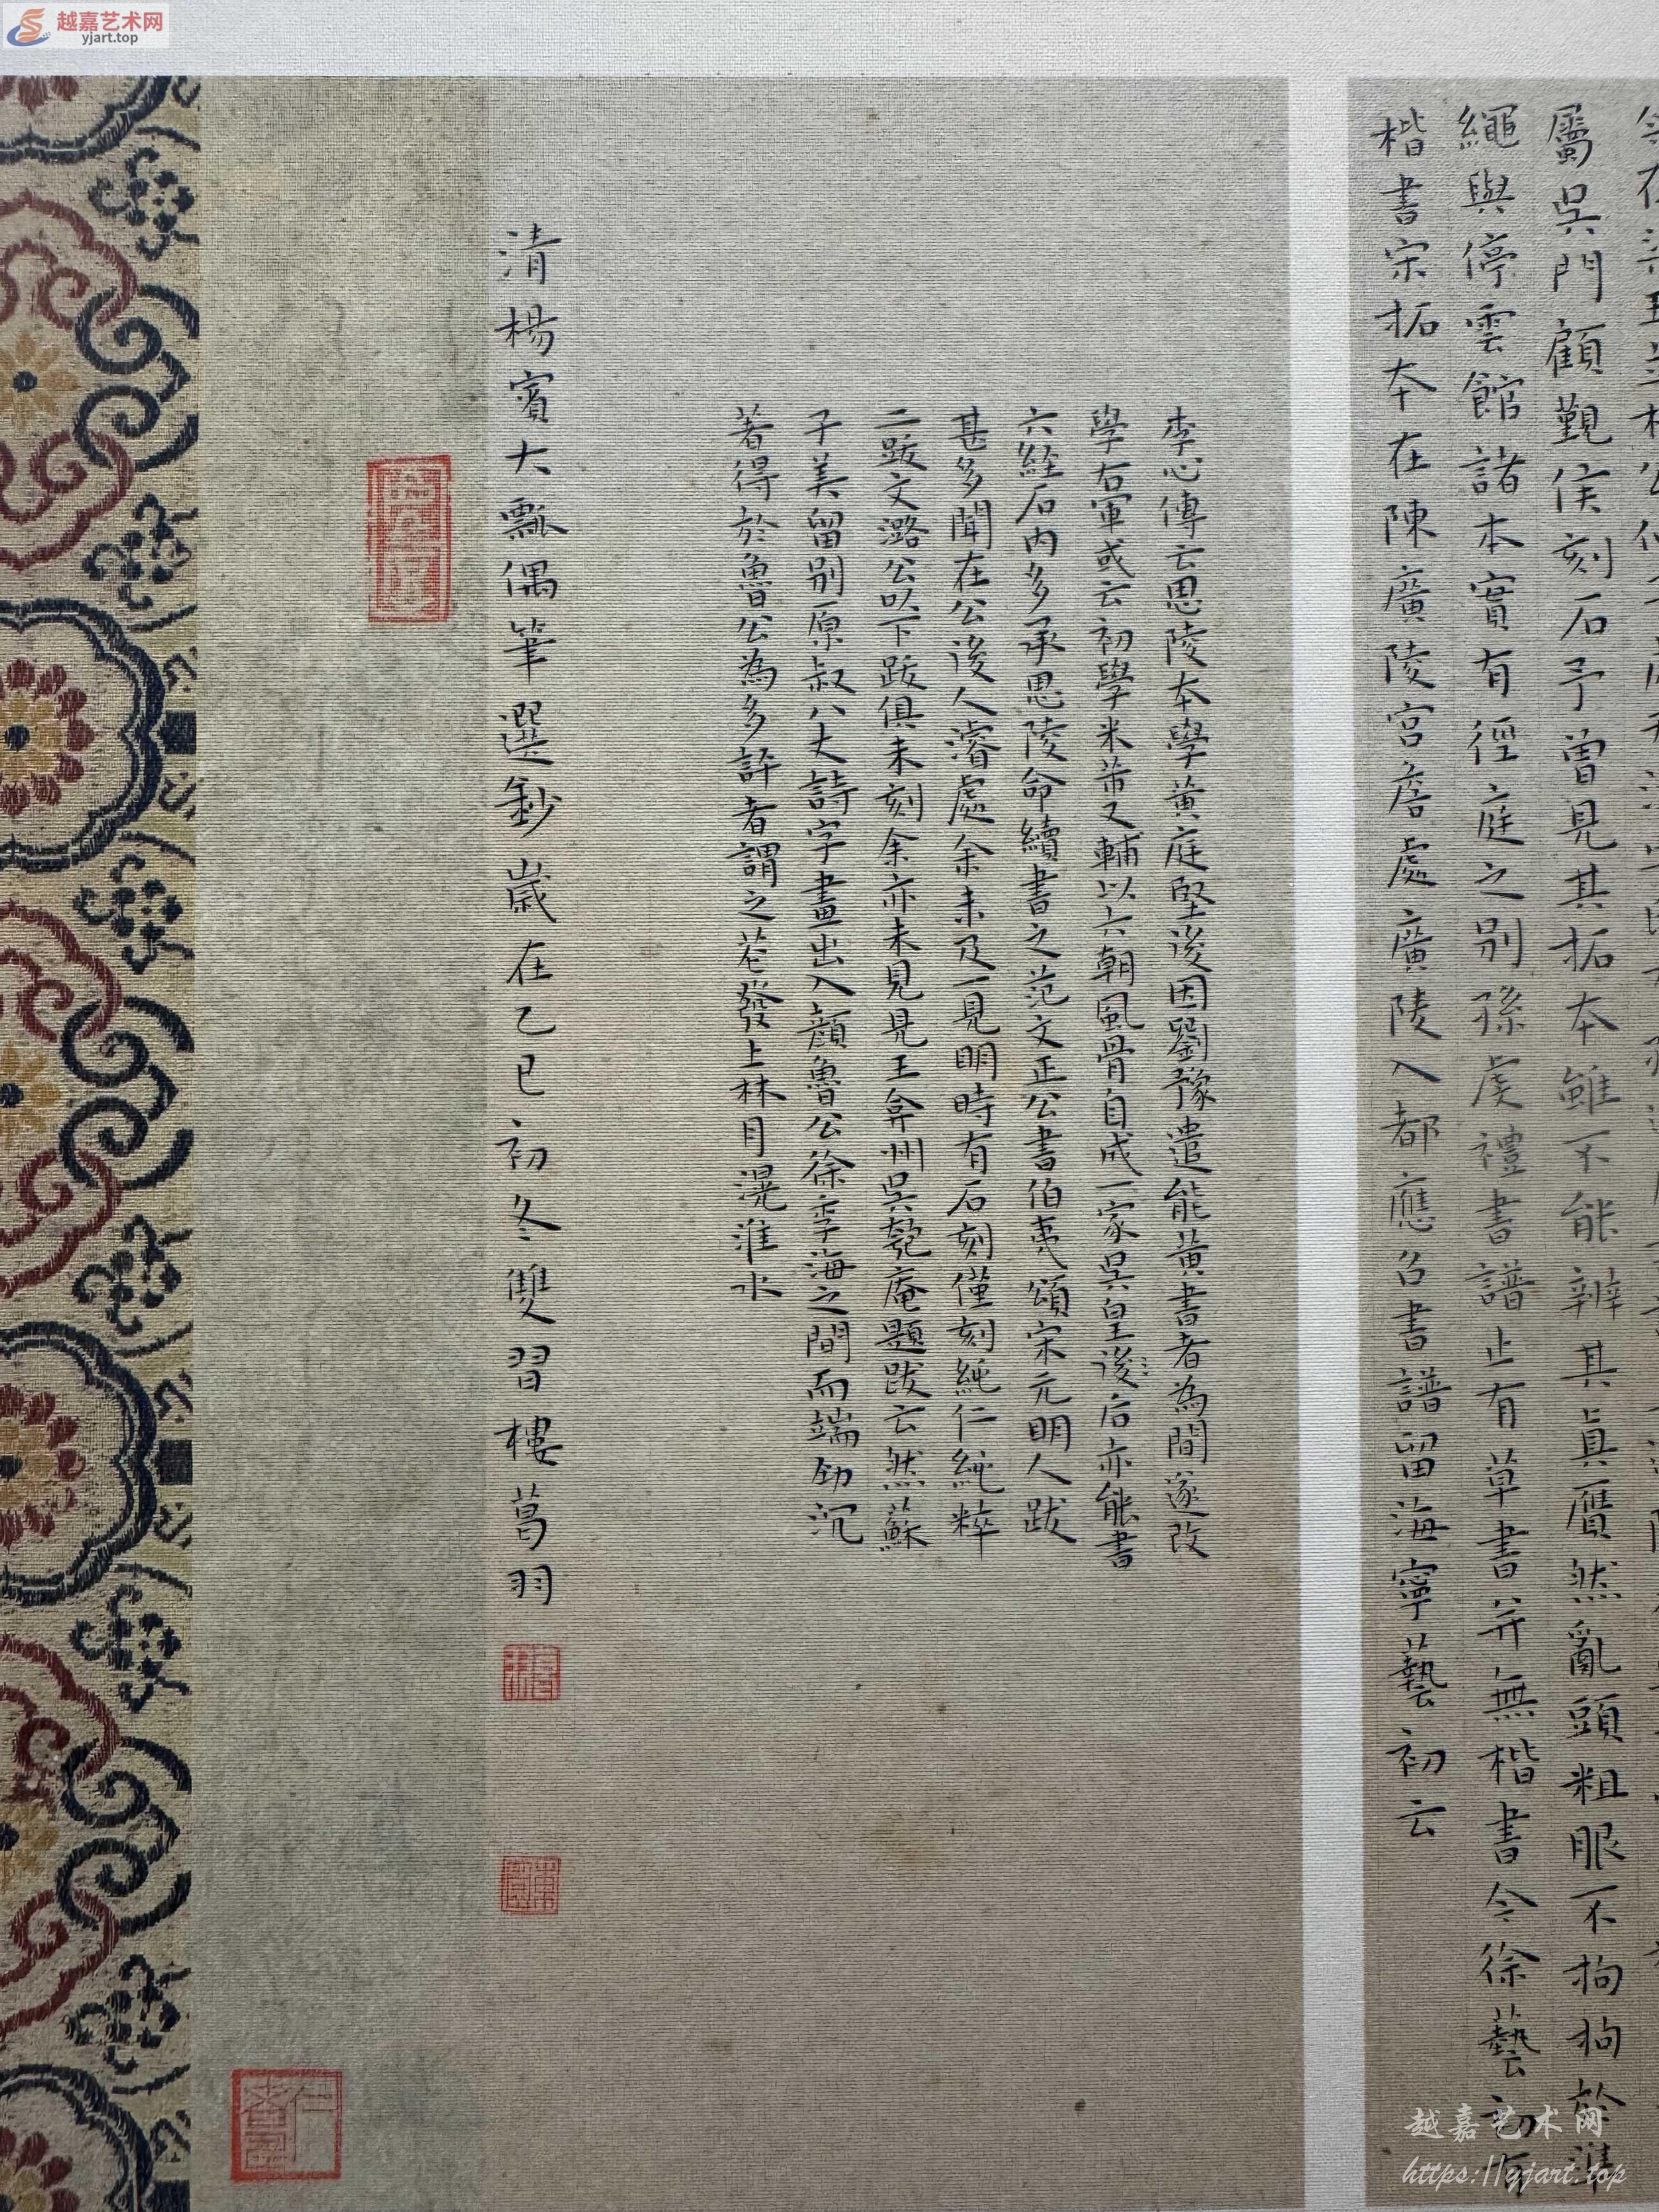 越嘉艺术网
yjart.top
屬吳門顧觀侯刻石予曾見其拓本雖不能辨其眞贋然亂頭粗眼不拘拘於準
繩與停雲館諸本實有徑庭之別孫虔禮書譜止有草書并無楷書今徐藝初有
楷書宋拓本在陳廣陵宮詹處廣陵入都應召書譜留海寧藝初云
李心傳云思陵本學黃庭堅後因劉豫遣能黃書者為間遂改
學右軍或云初學米芾又輔以六朝風骨自成一家吳皇後后亦能書
六経石内多承思陵命續書之范文正公書伯夷頌宋元明人跋
甚多聞在公後人濬處余未及一見明時有石刻僅刻純仁純粹
二跋文潞公以下跋俱未刻余亦未見見王弇州吳匏庵題跋云然蘇
子美留别原叔八丈詩字畫出入顔魯公徐季海之間而端勁沉
著得於魯公為多許者謂之花發上林月滉淮水
清楊賓大瓢偶筆選鈔歲在乙巳初冬雙習樓葛羽
越嘉艺术网
https://yjart.top